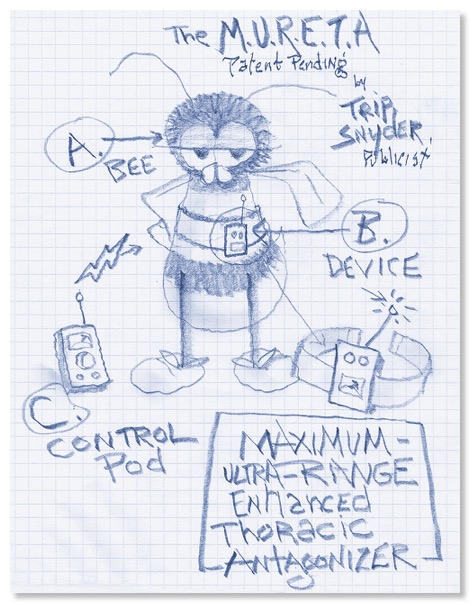 The M.U.R.E.T.A
Patent Pending
by
TRIP
SNYDER,
Publicist
A.
BEE
B.
DEVICE
C.
CONTROL
Pod
MAXIMUM-
ULTRA-RANGE
Enhanced
Thoracic
ANTAGONIZER